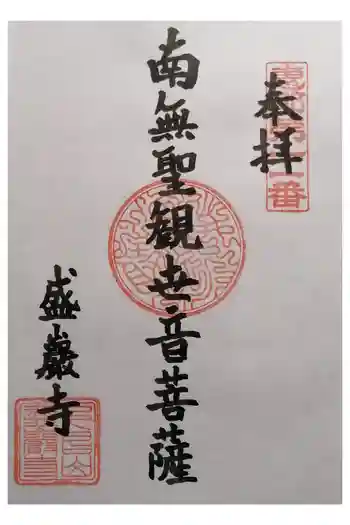 奉拝
南無聖観世音菩薩
盛巌寺